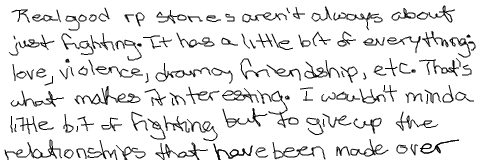 Real good rp stories aren't always about
just fighting. It has a little bit of everything;
love, violence, drama, friendship, etc. That's
what makes it interesting. I wouldn't mind a
little bit of fighting but to give up the
relationships that have been made over